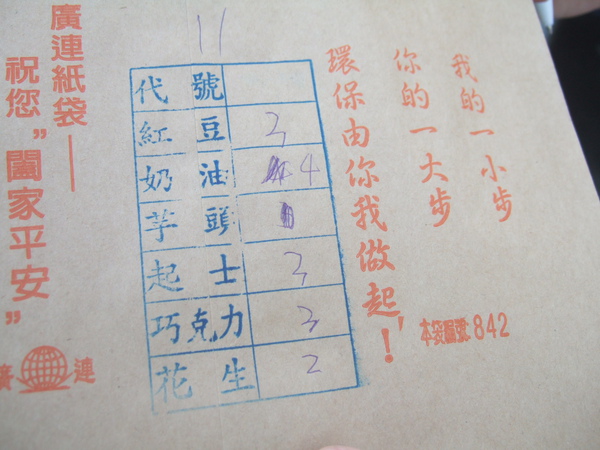 廣連紙袋—
祝您"闔家平安"
廣 連
11
代號
紅豆 3
奶油 4
芋頭
起士 3
巧克力 3
花生 2
我的一小步
你的一大步
環保由你我做起！
本袋圖號:842